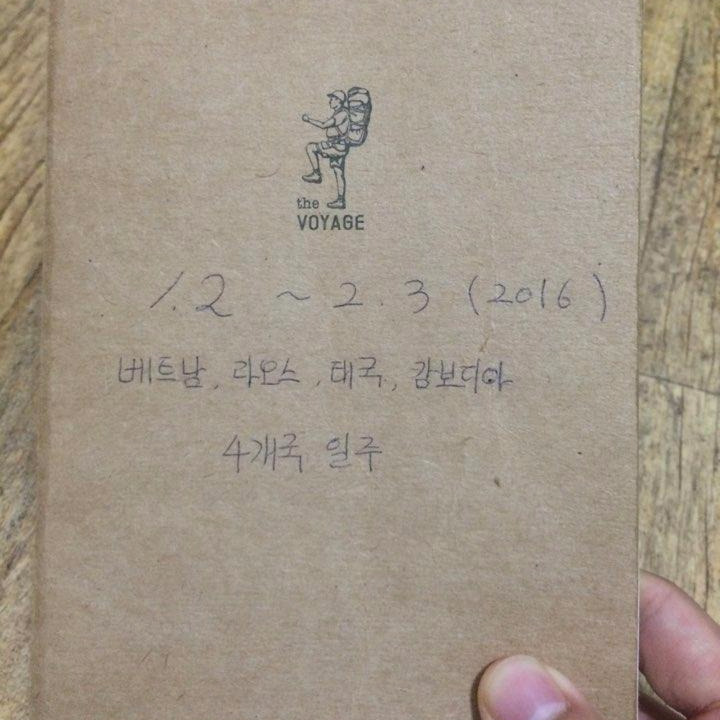 the
VOYAGE
1.2 ~ 2.3 (2016)
베트남, 라오스, 태국, 캄보디아
4개국 일주